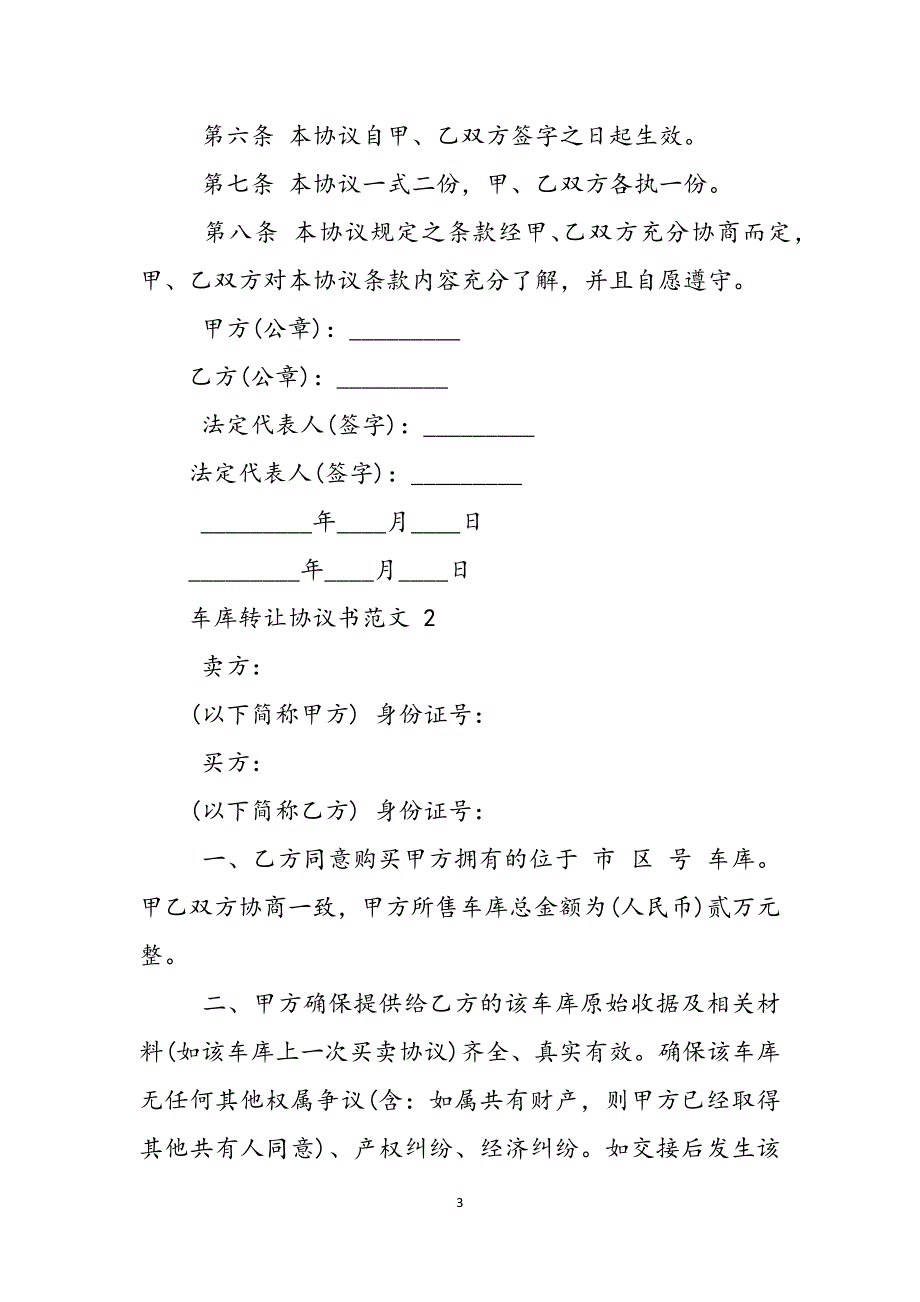 第六条 本协议自甲、乙双方签字之日起生效。
第七条 本协议一式二份，甲、乙双方各执一份。
第八条 本协议规定之条款经甲、乙双方充分协商而定，
甲、乙双方对本协议条款内容充分了解，并且自愿遵守。
甲方(公章)：_________
乙方(公章)：_________
法定代表人(签字)：_________
法定代表人(签字)：_________
_________年____月____日
_________年____月____日
车库转让协议书范文 2
卖方：
(以下简称甲方) 身份证号：
买方：
(以下简称乙方) 身份证号：
一、乙方同意购买甲方拥有的位于 市 区 号 车库。
甲乙双方协商一致，甲方所售车库总金额为(人民币)贰万元
整。
二、甲方确保提供给乙方的该车库原始收据及相关材
料(如该车库上一次买卖协议)齐全、真实有效。确保该车库
无任何其他权属争议(含：如属共有财产，则甲方已经取得
其他共有人同意)、产权纠纷、经济纠纷。如交接后发生该
3